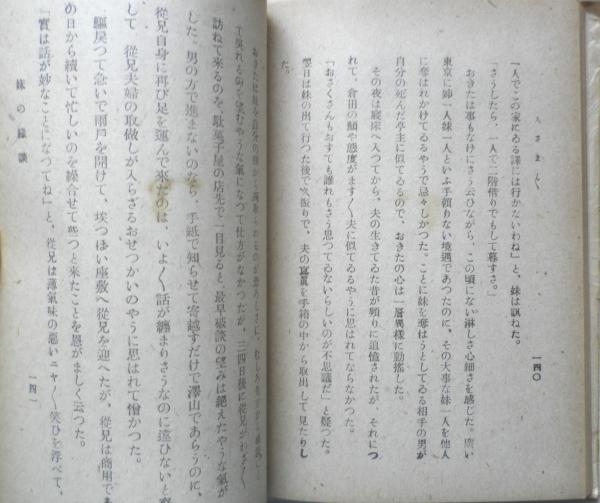 人さまざま
一四〇
一人でこの家にゐる譯には行かないわね」と、妹は訊ねた。
「さうしたら、一人で二階借りでもして暮すさ。」
おきたは事もなげにさう云ひながら、この頃にない淋しさ心細さを感じた。廣い
東京に姉一人妹一人といふ手頼りない境遇であつたのに、その大事な妹一人を他人
に奪はれかけてるるやうで忌々しかつた。ことに妹を奪はうとしてゐる相手の男が
自分の死んだ亭主に似てるるので、おきたの心は一層異樣に動搖した。
その夜は寢床へ入つてから、夫の生きてゐた昔が頻りに追憶されたが、それにつ
れて、倉田の顏や態度がます〳〵夫に似てゐるやうに思はれてならなかつた。
「おさくさんもおすても誰れもさう思つてゐないらしいのが不思議だ」と疑つた。
翌日は妹の出て行つた後で、久振りで、夫の寫眞を手箱の中から取出して見たりし
た。
て呉れるのを望むやうな氣になつて仕方がなかつたが、三四日後に從兄がわざ〳〵
訪ねて來るのを、駄菓子屋の店先で一目見ると、最早破談の望みは絶えたやうな氣が
した。男の方で進まないのなら、手紙で知らせて寄越すだけで澤山であらうのに、
從兄自身に再び足を運んで來たのは、いよ〳〵話が纏まりさうなのに違ひないと
して、從兄夫婦の取做しが入らざるおせつかいのやうに思はれて憎かつた。
驅戻つて急いで雨戸を開けて、埃つぽい座敷へ從兄を迎へたが、從兄は商用で
の日から續いて忙しいのを繰合せて些つと來たことを恩がましく云つた。
「實は話が妙なことになつてね」と、從兄は薄氣味の惡いニヤ〳〵笑ひを浮べて、
妹の縁談
一四一